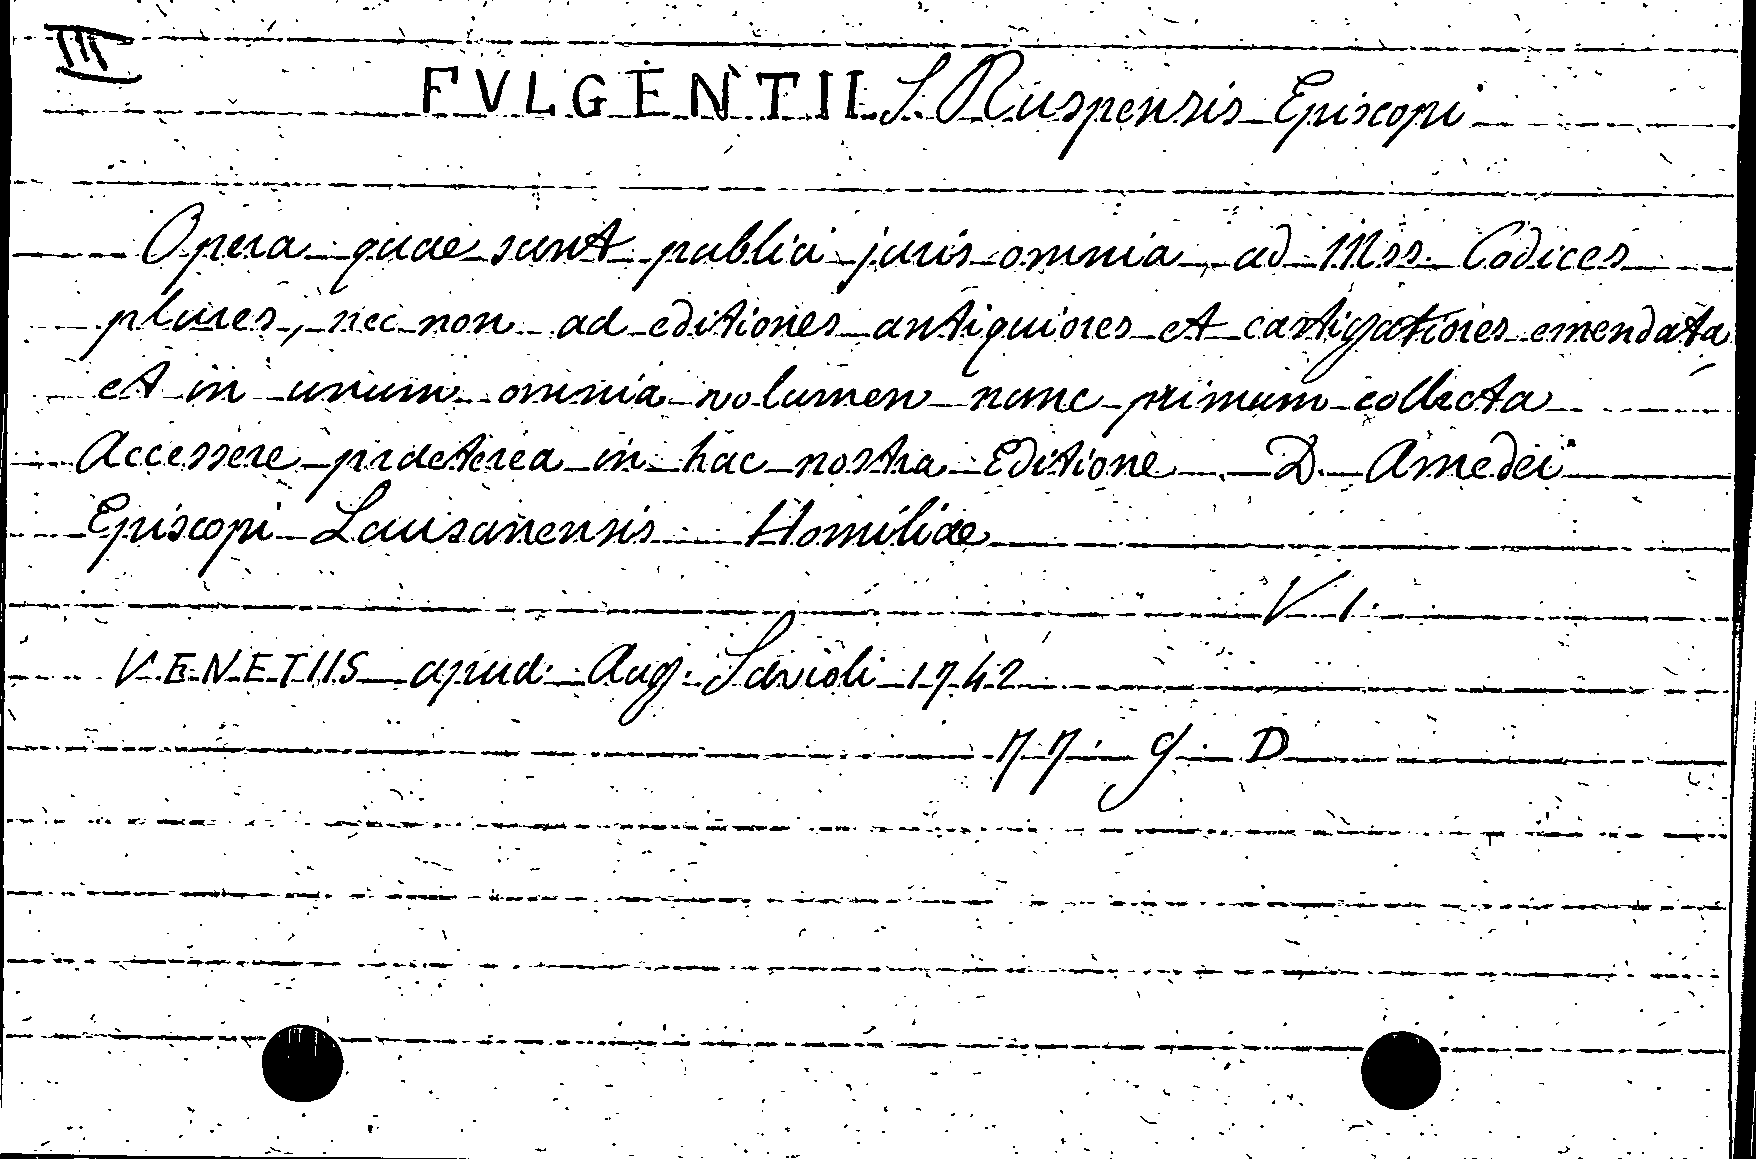 III
FVLGENTII S. Ruspensis Episcopi
Opera quae sunt publici juris omnia, ad Mss. Codices
plures, nec non ad editiones antiquiores et castigatiores emendata
et in unum omnia volumen nunc primum collecta
Accessere praeterea in hac nostra Editione D. Amedei
Episcopi Lausanensis Homiliae
V. 1.
VENETIIS apud Aug. Savioli 1742
77. G. D